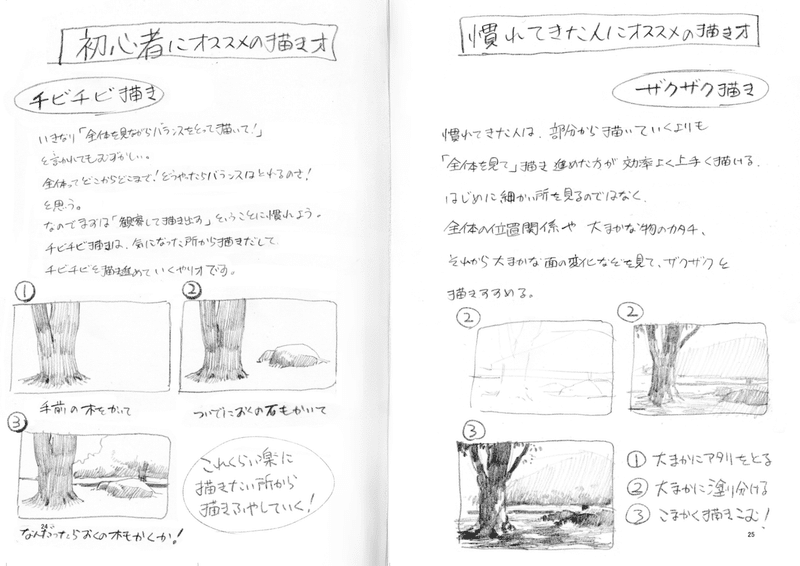 初心者にオススメの描き方
チビチビ描き
いきなり「全体を見ながらバランスをとって描いて!」
と言われてもむずかしい。
全体ってどこからどこまで!どうやったらバランスはとれるのさ!
と思う。
なのでまずは「観察して描き出す」ということに慣れよう。
チビチビ描きは、気になった所から描きだして
チビチビと描き進めていくやり方です。
①
②
手前の木をかいて
ついでにおくの石もかいて
③
なんだったらおくの木もかくか!
これくらい楽に
描きたい所から
描きふやしていく!
慣れてきた人にオススメの描き方
ザクザク描き
慣れてきた人は、部分から描いていくよりも
「全体を見て」描き進めた方が効率よく上手く描ける。
はじめに細かい所を見るのではなく、
全体の位置関係や大まかな物のカタチ、
それから大まかな面の変化などを見て、ザクザクと
描きすすめる。
②
②
③
① 大まかにアタリをとる
② 大まかに塗り分ける
③ こまかく描きこむ!
25